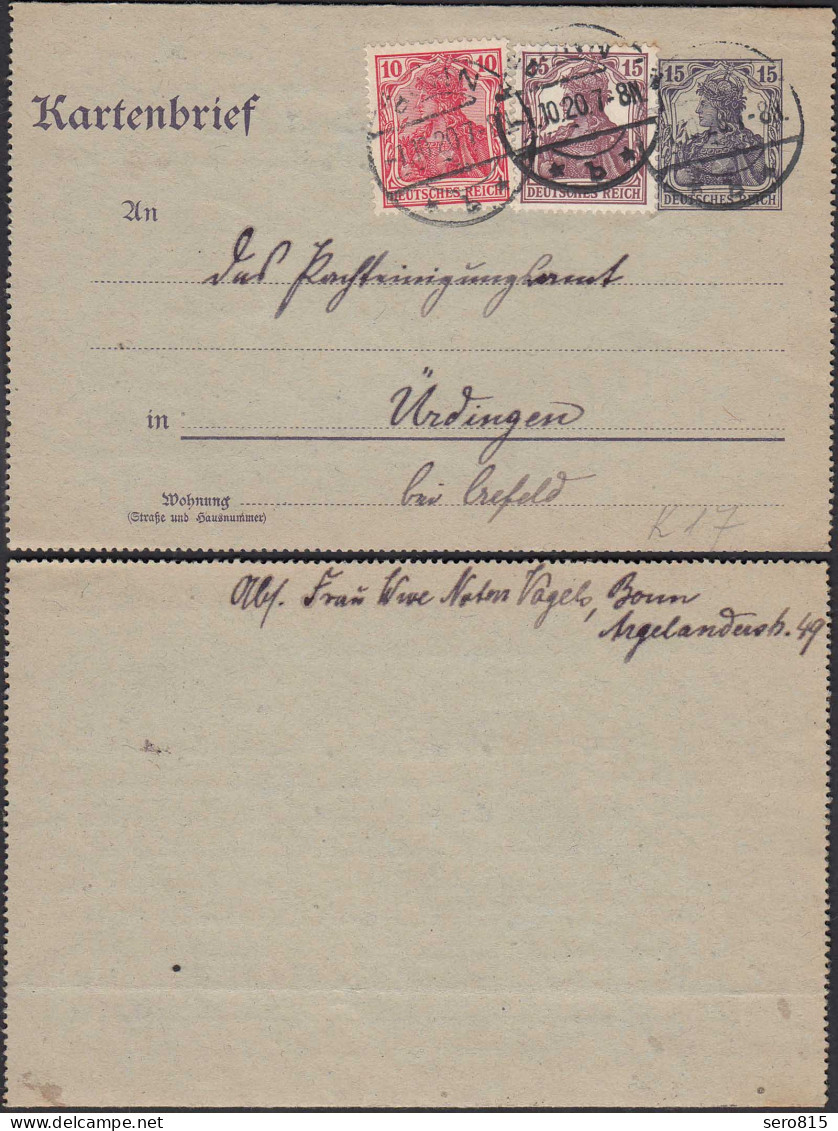 Kartenbrief
10 10
DEUTSCHES REICH
15 15
DEUTSCHES REICH
15 15
DEUTSCHES REICH
10.20.7-8N.
* b *
An
das Pachteinigungsamt
in Ürdingen
bei Crefeld
Wohnung
(Straße und Hausnummer)
K 17
Abs. Frau Wwe Notar Vogels, Bonn
Argelanderstr. 49
sero815